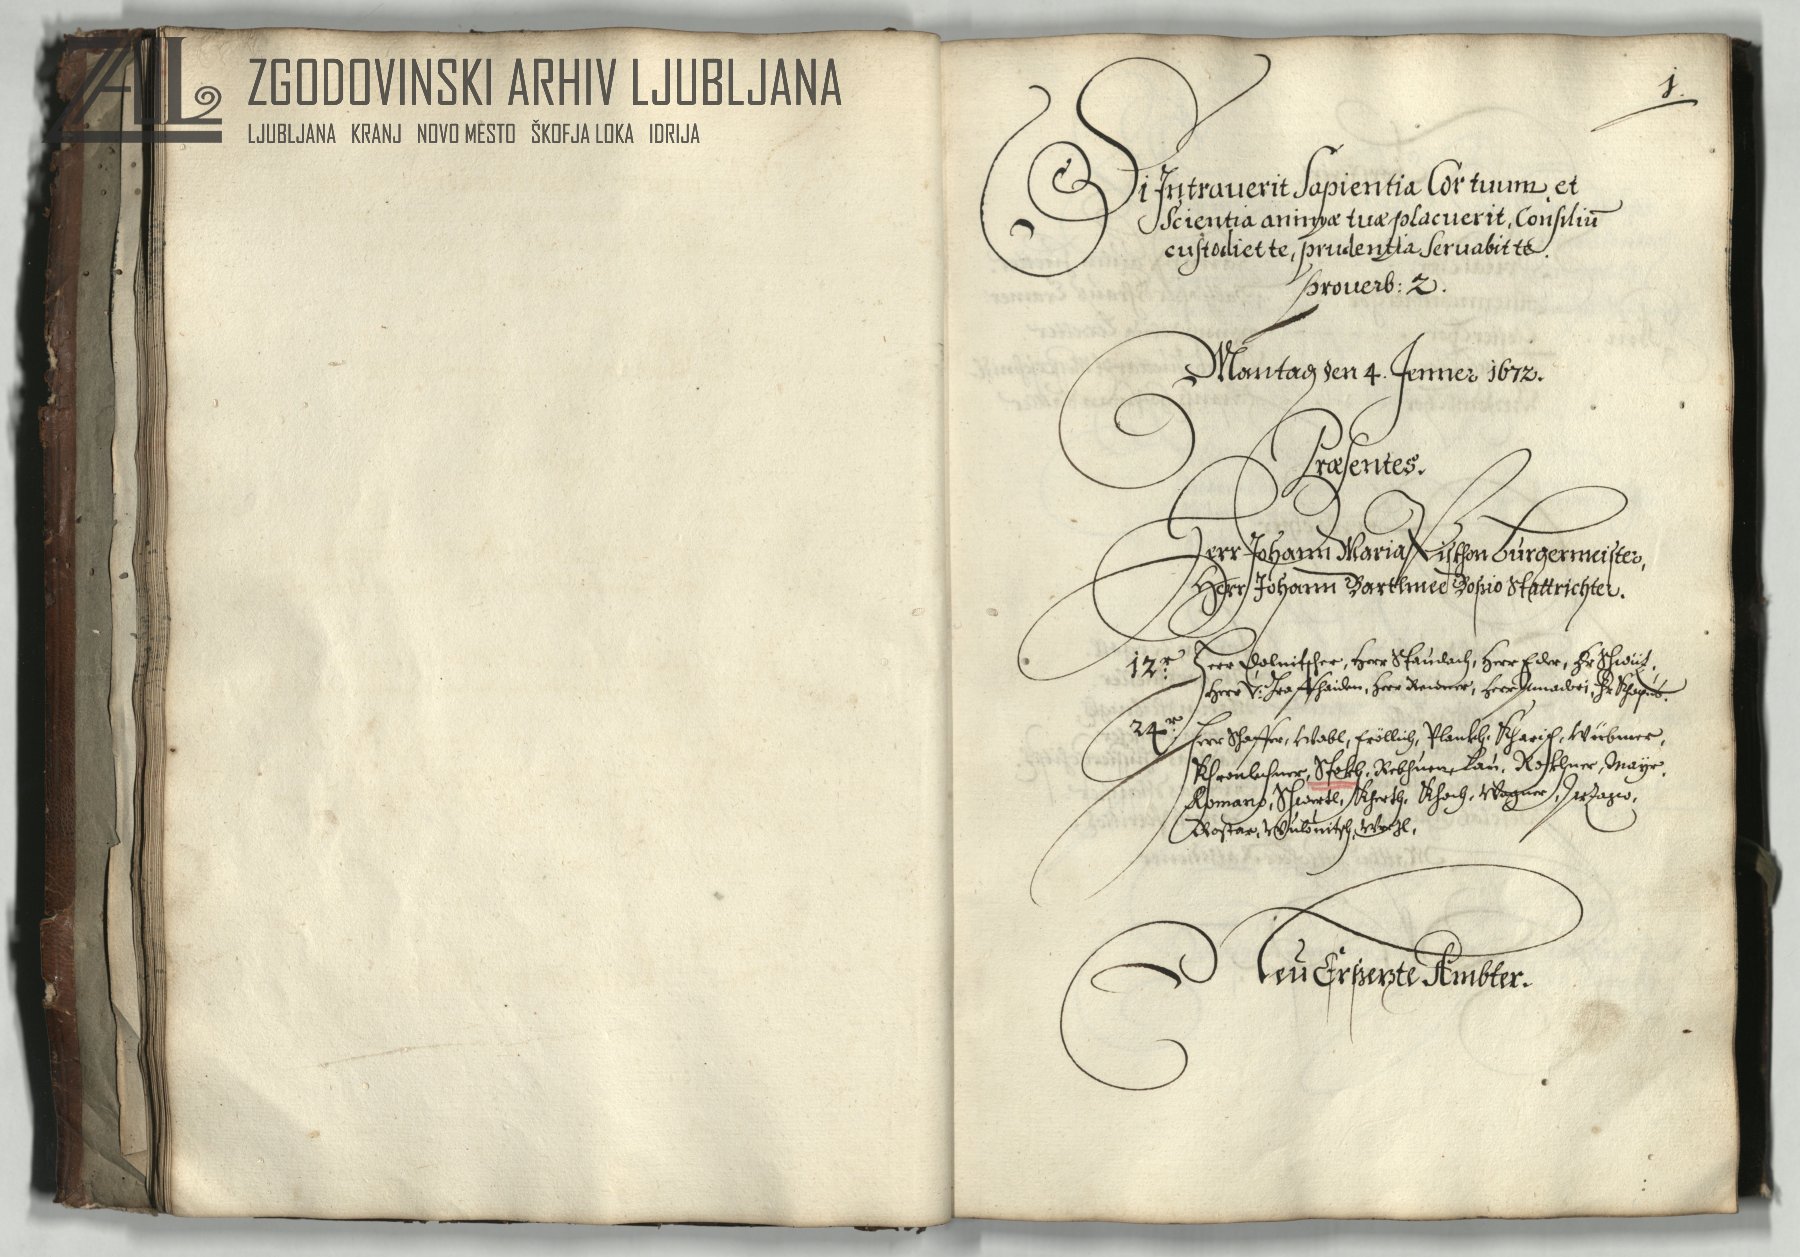 ZAL
ZGODOVINSKI ARHIV LJUBLJANA
LJUBLJANA KRANJ NOVO MESTO ŠKOFJA LOKA IDRIJA
1.
Si Intrauerit Sapientia Cor tuum et
Scientia animæ tuæ placuerit, Consiliū
custodiet te, prudentia Seruabit te.
prouerb: 2.
Mantag den 4. Jenner 1672.
Præsentes.
Herr Johann Maria burgermeister,
Herr Johann Bartlmee Bosio Stattrichter.
12.r Herr Dolnitscher, Herr Staudach, Herr Eder,
Herr Herr Amadori,
24.r Herr Schaffer, Wabl, Fröllich, Plankh,
Stokh, Rebhuen, Lau, Mayr,
Romano, Khoch, Wagner,
Neu Erserzte Ämbter.